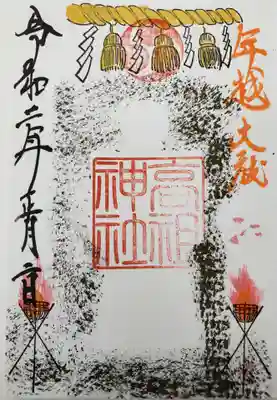 年越大祓
高
神社
令和二年正月二日